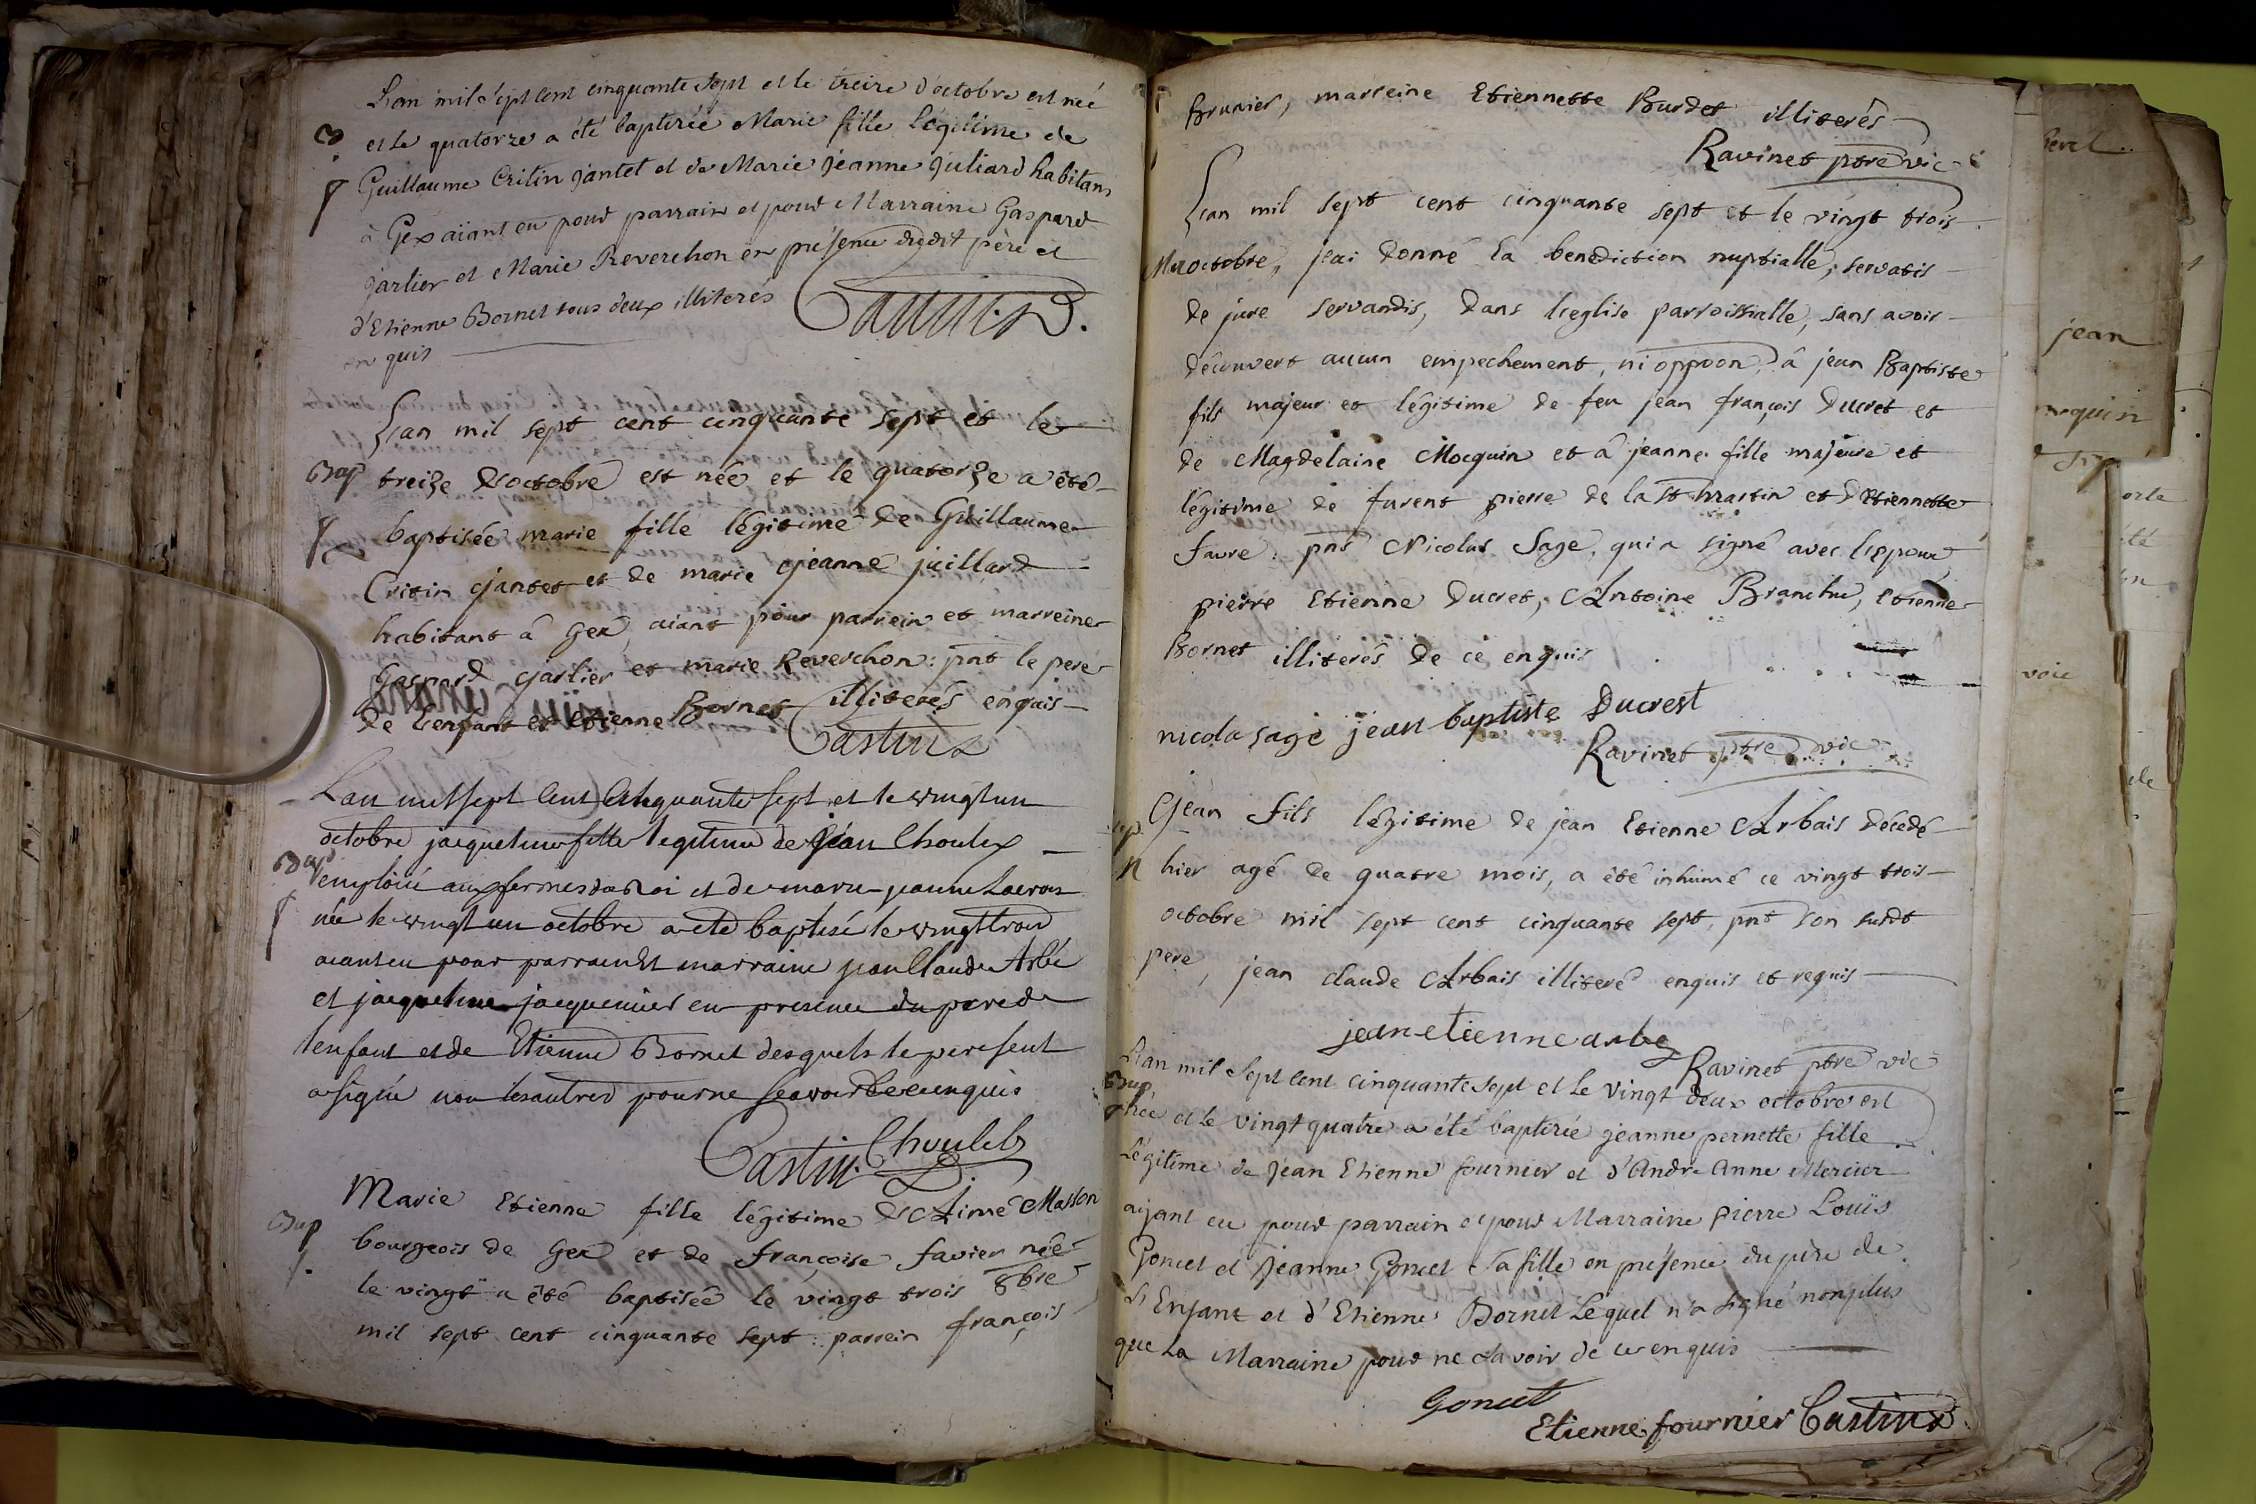 L'an mil sept cent cinquante sept et le treize d'octobre est née
B
et le quatorze a été baptizée Marie fille légitime de
Guillaume Critin Jantet et de Marie Jeanne Juliard habitans
à Gex aiant eu pour parrain et pour Marraine Gaspard
Jarlier et Marie Reverchon en présence dudit père et
d'Etienne Bornet tous deux illiterés
enquis
Castin
L'an mil sept cent cinquante sept et le
Bap treize d'octobre est née et le quatorze a été
baptisée marie fille légitime de Guillaume
Critin Jantet et de marie Jeanne juillard
habitant â Gex, aiant pour parrein et marreine
Gaspard Jarlier et marie Reverchon : pnt le pere
de l'enfant et Etienne Bornet illiterés enquis
Castin
L'an mil sept cent cinquante sept et le vingt un
octobre jacqueline fille legitime de Jean Choulex
Bap
emploié aux fermes du Roi et de marie jeanne Lacroix
née le vingt un octobre a été baptisé le vingt trois
aiant eu pour parrain et marraine jean Claude Arbé
et jacqueline jacquemier en presence du pere de
l'enfant et de Etienne Bornet desquels le pere seul
a signé non les autres pour ne sçavoir de ce enquis
Choulex
Castin
Marie Etienne fille légitime d'Aimé Masson
Bap
bourgeois de Gex et de françoise favier née
le vingt a été baptisée le vingt trois 8bre
mil sept cent cinquante sept : parrein françois
Brunier, marreine Etiennette Burdet illiterés
Ravinet ptre vic
L'an mil sept cent cinquante sept et le vingt trois
Mar octobre, j'eai donné la benediction nuptialle, servatis
de jure servandis, dans l'eglise parroissialle, sans avoir
découvert aucun empechement, ni oppoon, â jean Baptiste
fils majeur et légitime de feu jean françois Ducret et
de Magdelaine Mocquin et â jeanne fille majeure et
légitime de furent pierre de la St martin et d'Etiennette
favre : pns Nicolas Sage, qui a signé avec l'epoux
pierre Etienne Ducret, Antoine Branchu, Etienne
Bornet illiterés de ce enquis
nicola sage jean baptiste Ducrest
Ravinet ptre vic
Jean fils légitime de jean Etienne Arbais décedé
sep.
hier agé de quatre mois, a été inhumé ce vingt trois
octobre mil sept cent cinquante sept, pnt son susdt
pere, jean claude Arbais illiteré enquis et requis
jean etienne arbe
Ravinet ptre vic
L'an mil sept cent cinquante sept et le vingt deux octobre est
Bap
née et le vingt quatre a été baptizée jeanne pernette fille
Légitime de Jean Etienne fournier et d'Andre Anne Mercier
aijant eu pour parrain et pour Marraine Pierre Louïs
Goncet et Jeanne Goncet sa fille en présence du père de
L'Enfant et d'Etienne Bornet Lequel n'a signé non plus
que La Marraine pour ne savoir de ce enquis
Goncet
Etienne fournier Castin
jean
voie